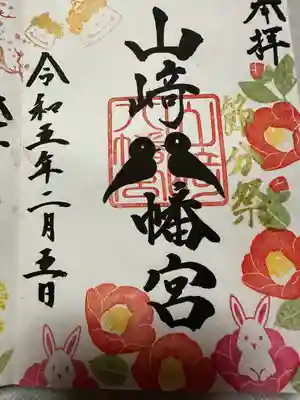 奉拝
節分祭
山崎八幡宮
令和五年二月五日